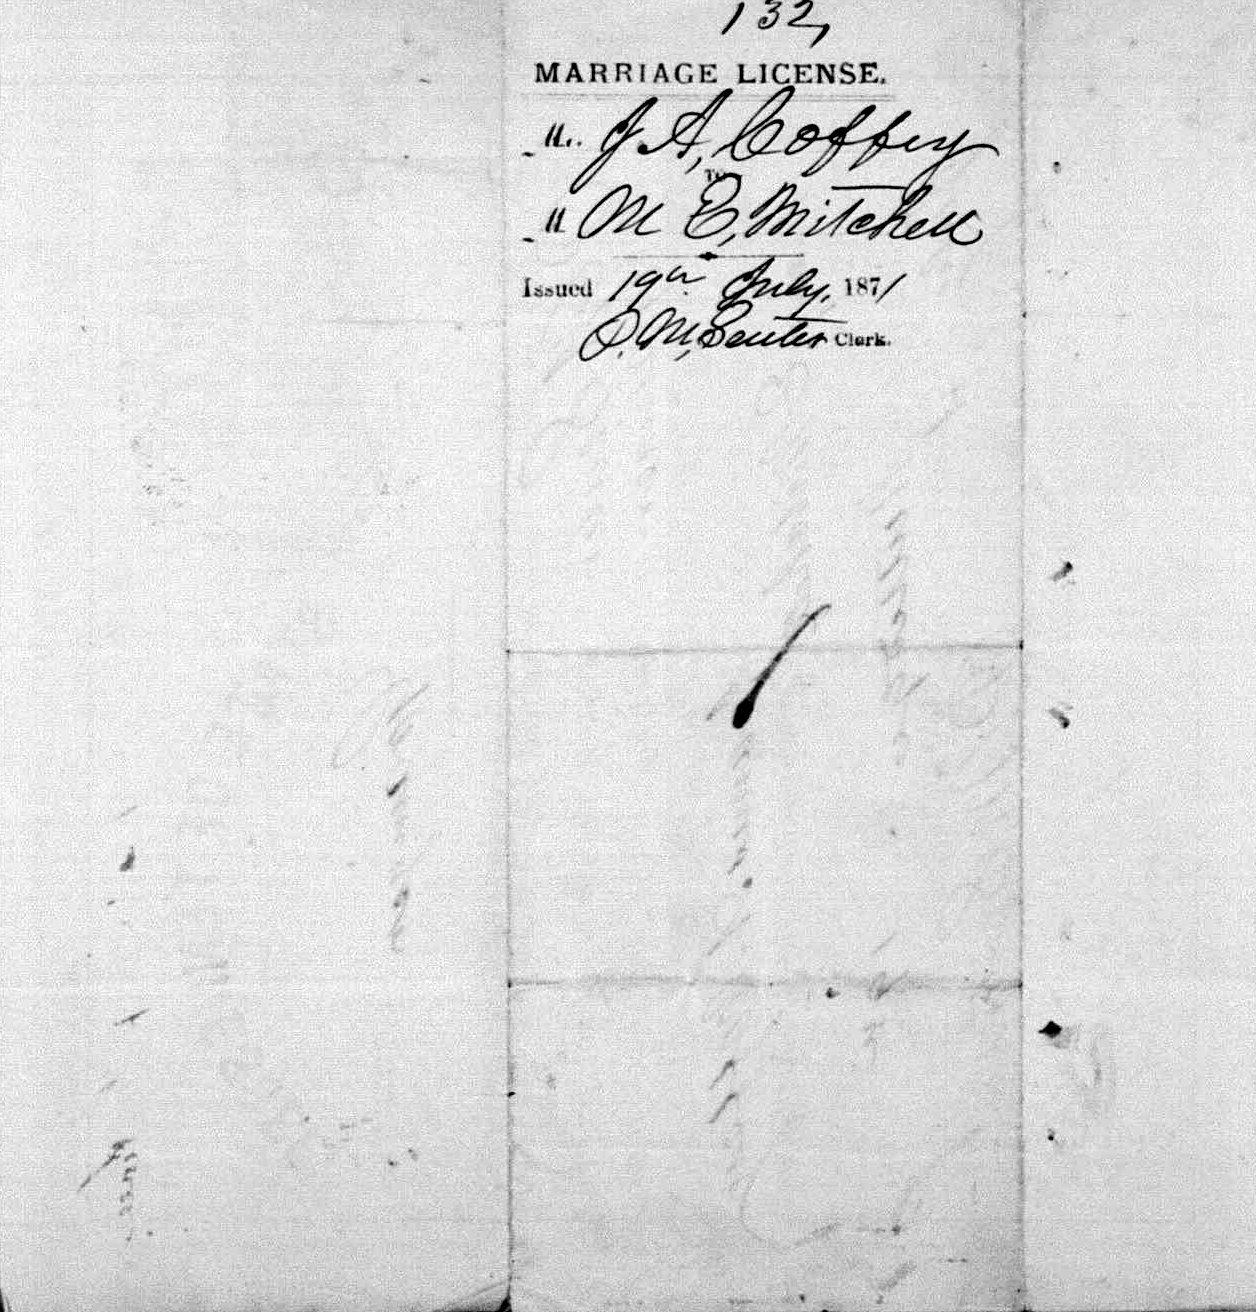 132,
MARRIAGE LICENSE.
M. J. A, Coffey
To
M M E, Mitchell
Issued 19th July, 1871
Clerk.